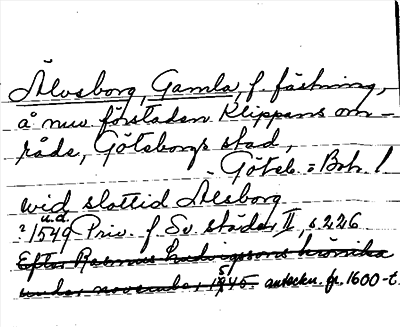 Älvsborg, Gamla, f. fästning,
å nuv. förstaden Klippans om-
råde, Göteborgs stad,
Göteb. o Boh. l
wid slottid Älsborg
u.d.
? 1549 Priv. f. Sv. städer II, s. 226
Efter Rasmus Ludvigssons krönika
under november 1545. anteckn. fr. 1600-t.